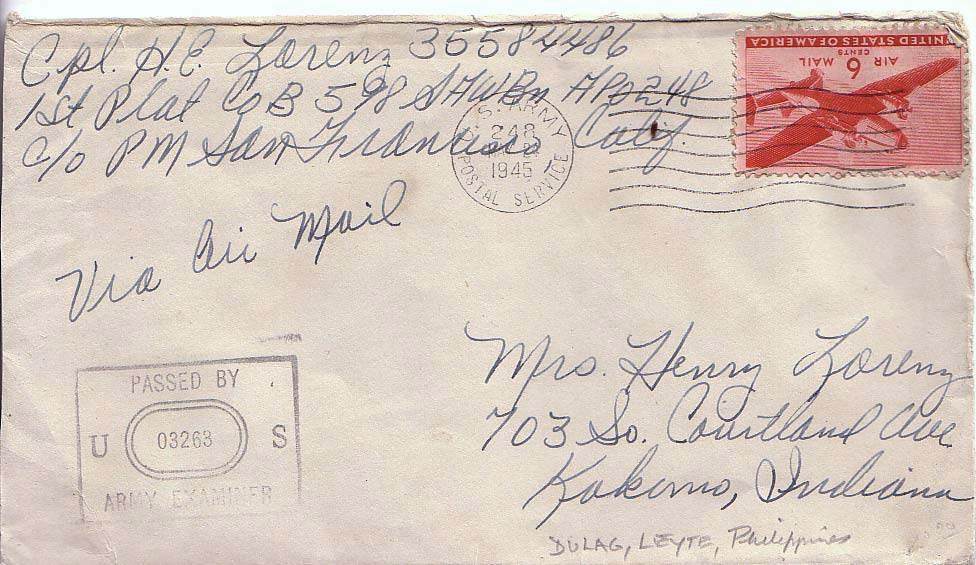 Cpl. H.E. Lorenz 35584486
1st Plat Co B 598 SAWBn APO 248
c/o PM San Francisco Calif.
Via Air Mail
U.S. ARMY
248
1945
POSTAL SERVICE
UNITED STATES OF AMERICA
6 CENTS
AIR MAIL
PASSED BY
U 03263 S
ARMY EXAMINER
Mrs. Henry Lorenz
703 So. Courtland Ave
Kokomo, Indiana
DULAG, LEYTE, Philippines